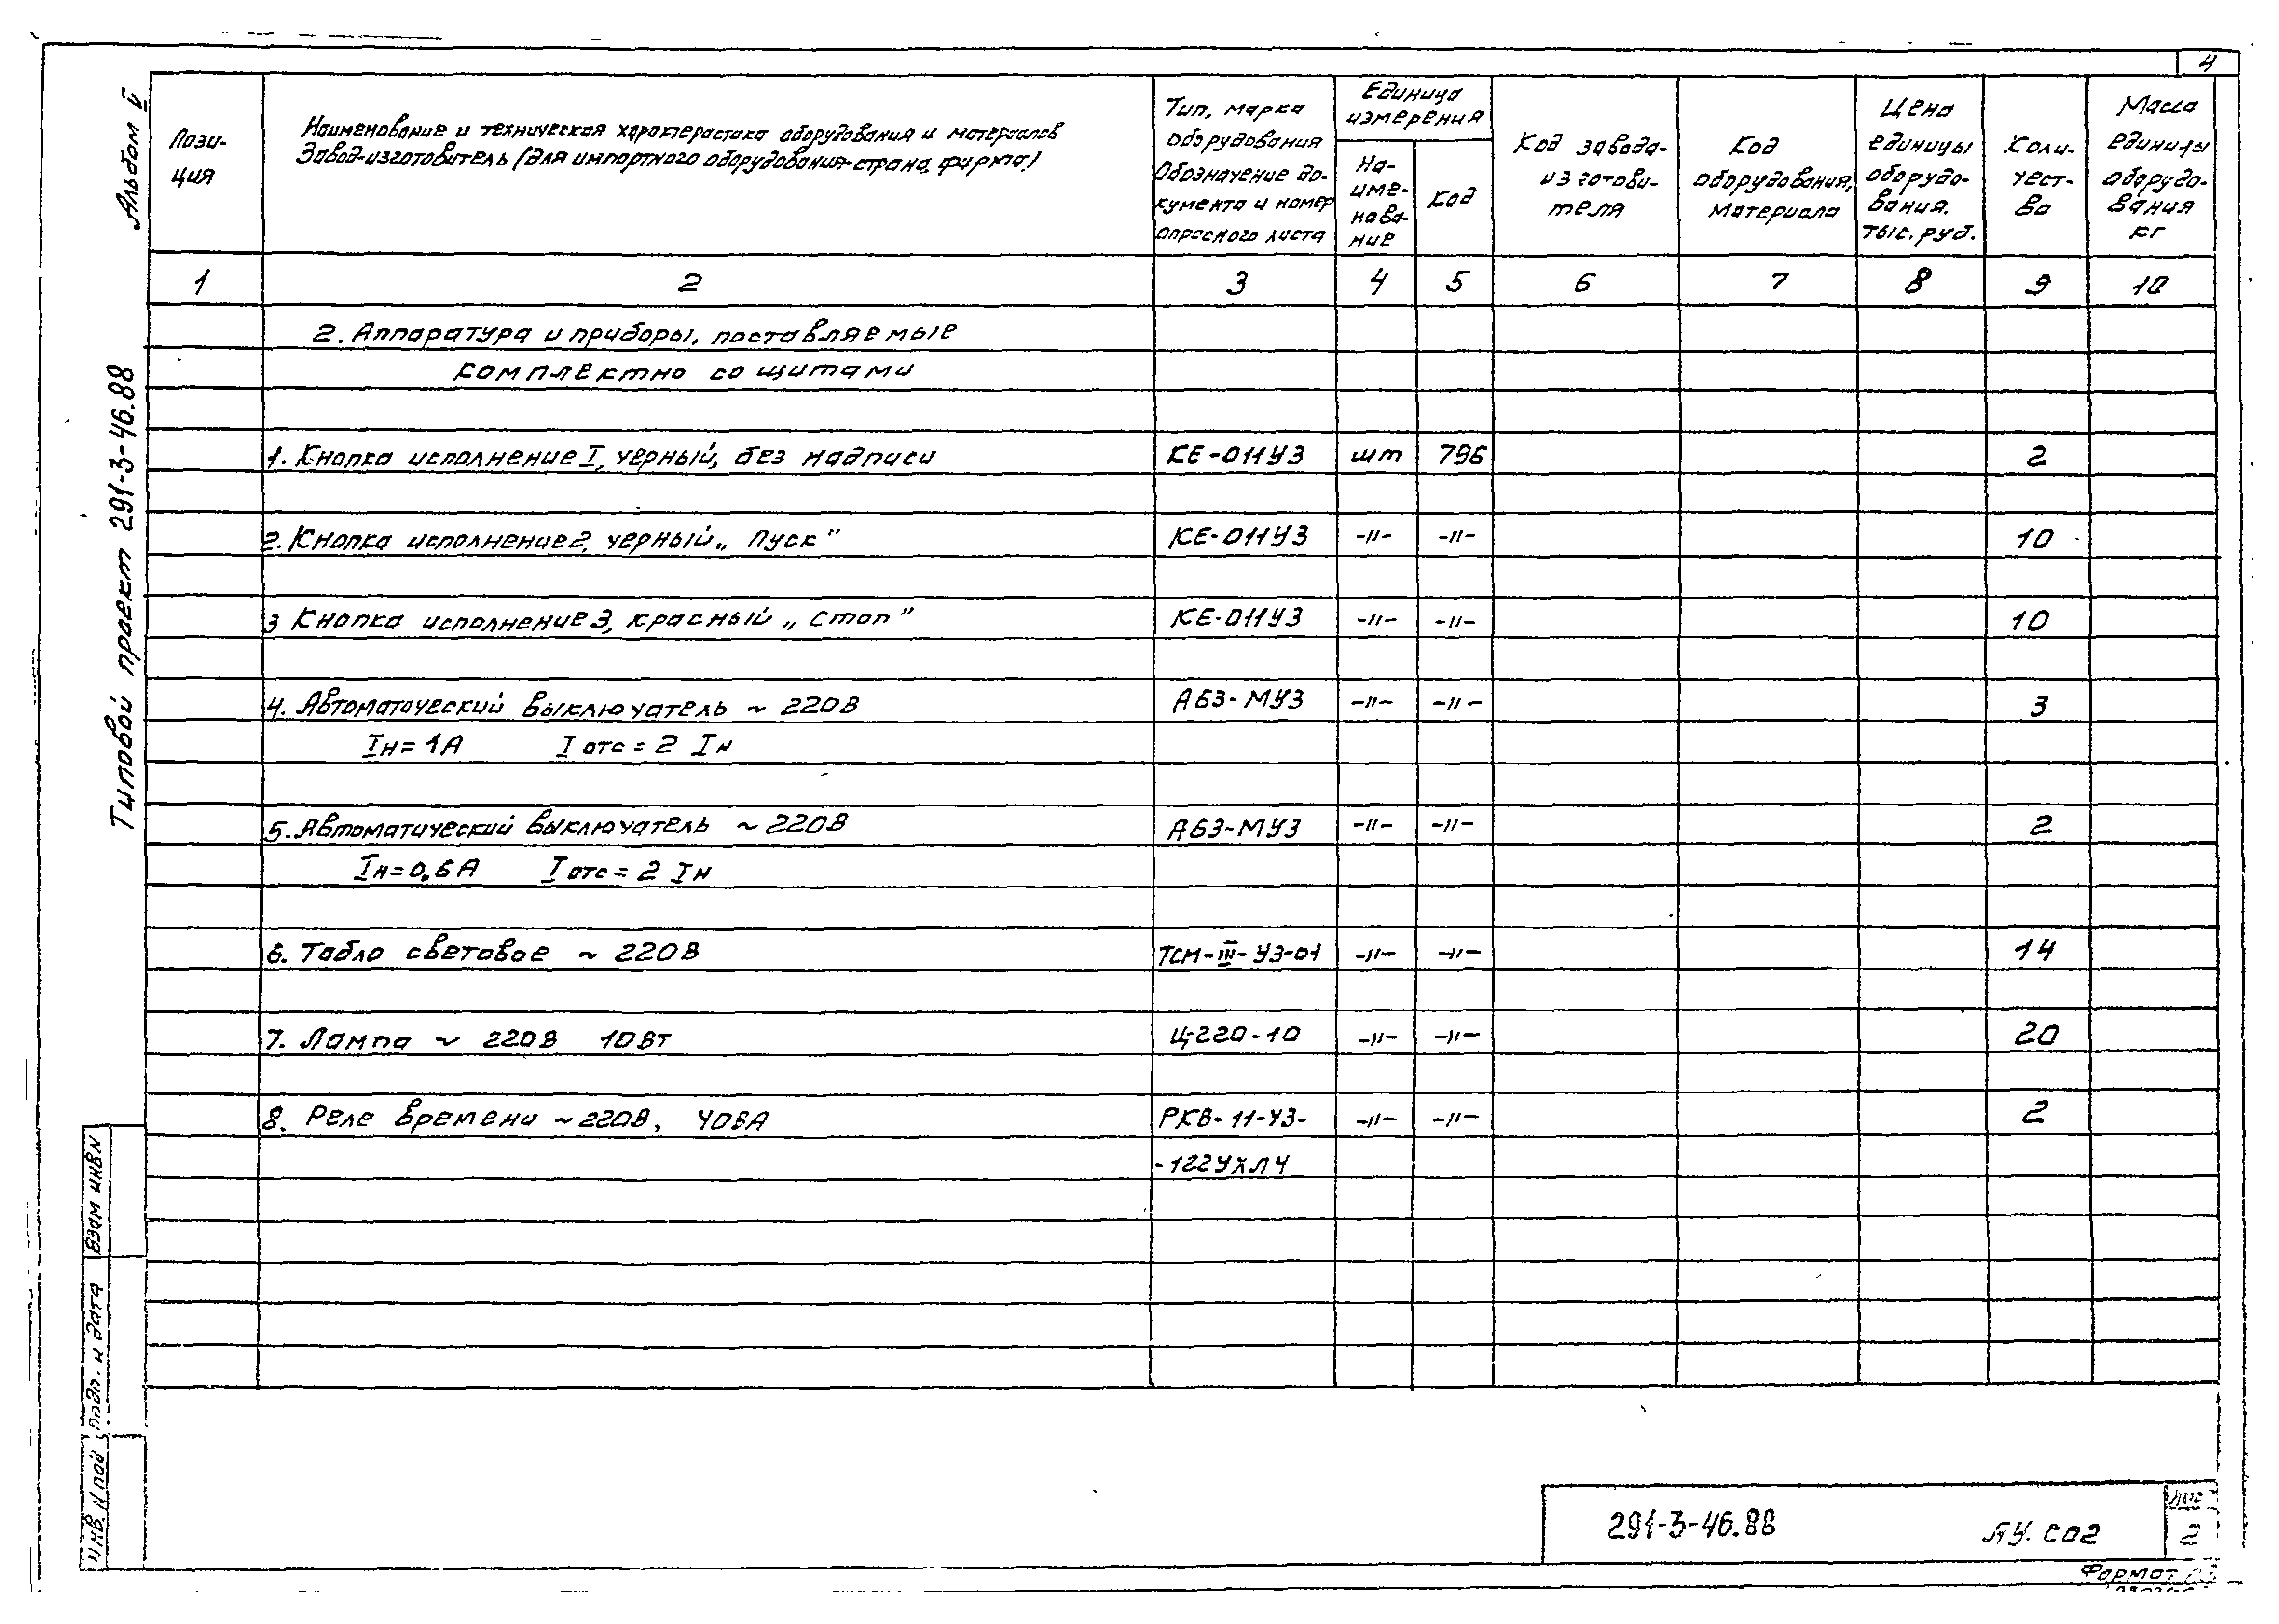 4
Альбом V
Типовой проект 291-3-46.88
Пози-
ция
Наименование и техническая характеристика оборудования и материалов
Завод-изготовитель (для импортного оборудования-страна, фирма)
Тип, марка
оборудования
Обозначение до-
кумента и номер
опросного листа
Единица
измерения
На-
име-
нова-
ние
Код
Код завода-
изготови-
теля
Код
оборудования,
материала
Цена
единицы
оборудо-
вания,
тыс. руб.
Коли-
чест-
во
Масса
единицы
оборудо-
вания
кг
1 2 3 4 5 6 7 8 9 10
2. Аппаратура и приборы, поставляемые
комплектно со щитами
1. Кнопка исполнение I, черный, без надписи КЕ-011У3 шт 796 2
2. Кнопка исполнение 2, черный „Пуск" КЕ-011У3 -"- -"- 10
3 Кнопка исполнение 3, красный „Стоп" КЕ-011У3 -"- -"- 10
4. Автоматический выключатель ~ 220В А63-МУ3 -"- -"- 3
Iн=1А Iотс=2 Iн
5. Автоматический выключатель ~ 220В А63-МУ3 -"- -"- 2
Iн=0,6А Iотс=2 Iн
6. Табло световое ~ 220В ТСМ-III-У3-01 -"- -"- 14
7. Лампа ~ 220В 10Вт Ц-220-10 -"- -"- 20
8. Реле времени ~220В, 40ВА РКВ-11-43- -"- -"- 2
-122УХЛ4
Взам инв N
Подп. и дата
Инв. N под
291-3-46.88 АУ. СО2
Лист
2
Формат А3